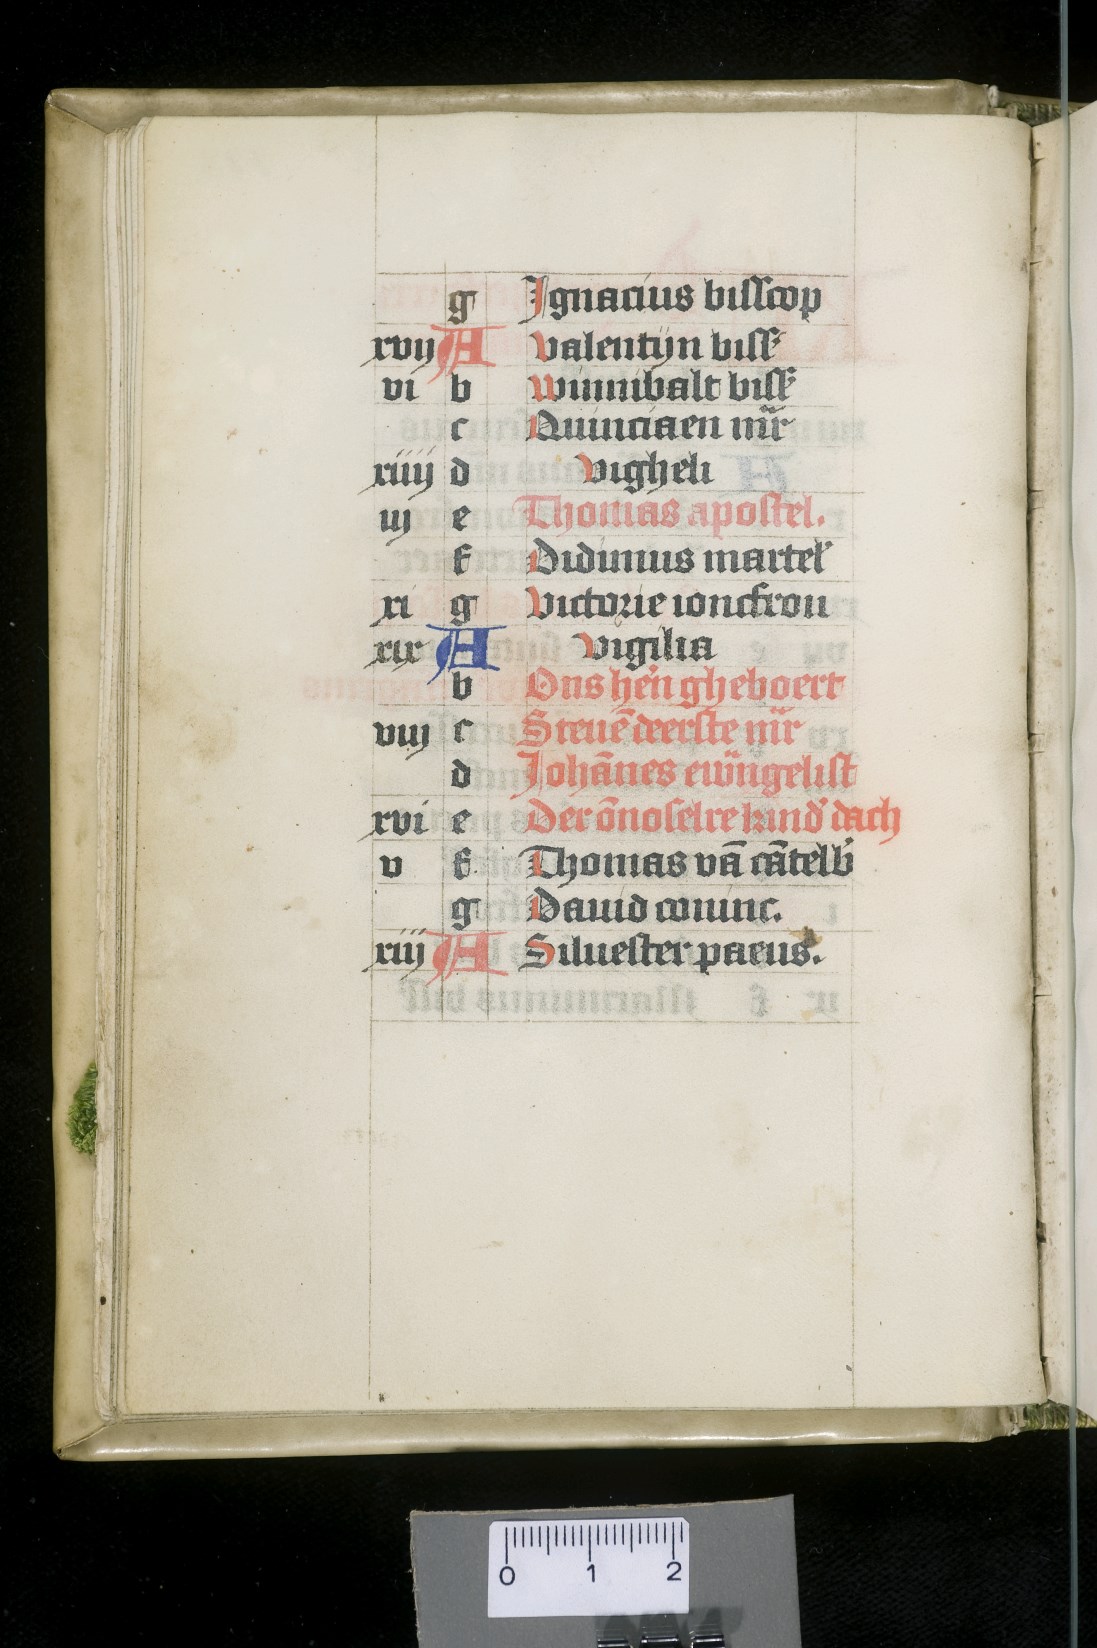 g Ignacius bisscop
xvij A Valentijn biss᷒
vi b Winnibalt biss᷒
c Quinciaen mr̄
xiiij d Vigheli
iij e Thomas apostel.
f Didimus martel᷒
xi g Victorie ioncfrou
xix A Vigilia
b Ons he᷒n gheboert
viij c Steuē deerste mr̄
d Johānes ewāngelist
xvi e Der ōnoselre kind᷒ dach
v f Thomas vā cātelb᷒
g Dauid coninc.
xiij A Siluester paeus.
0 1 2